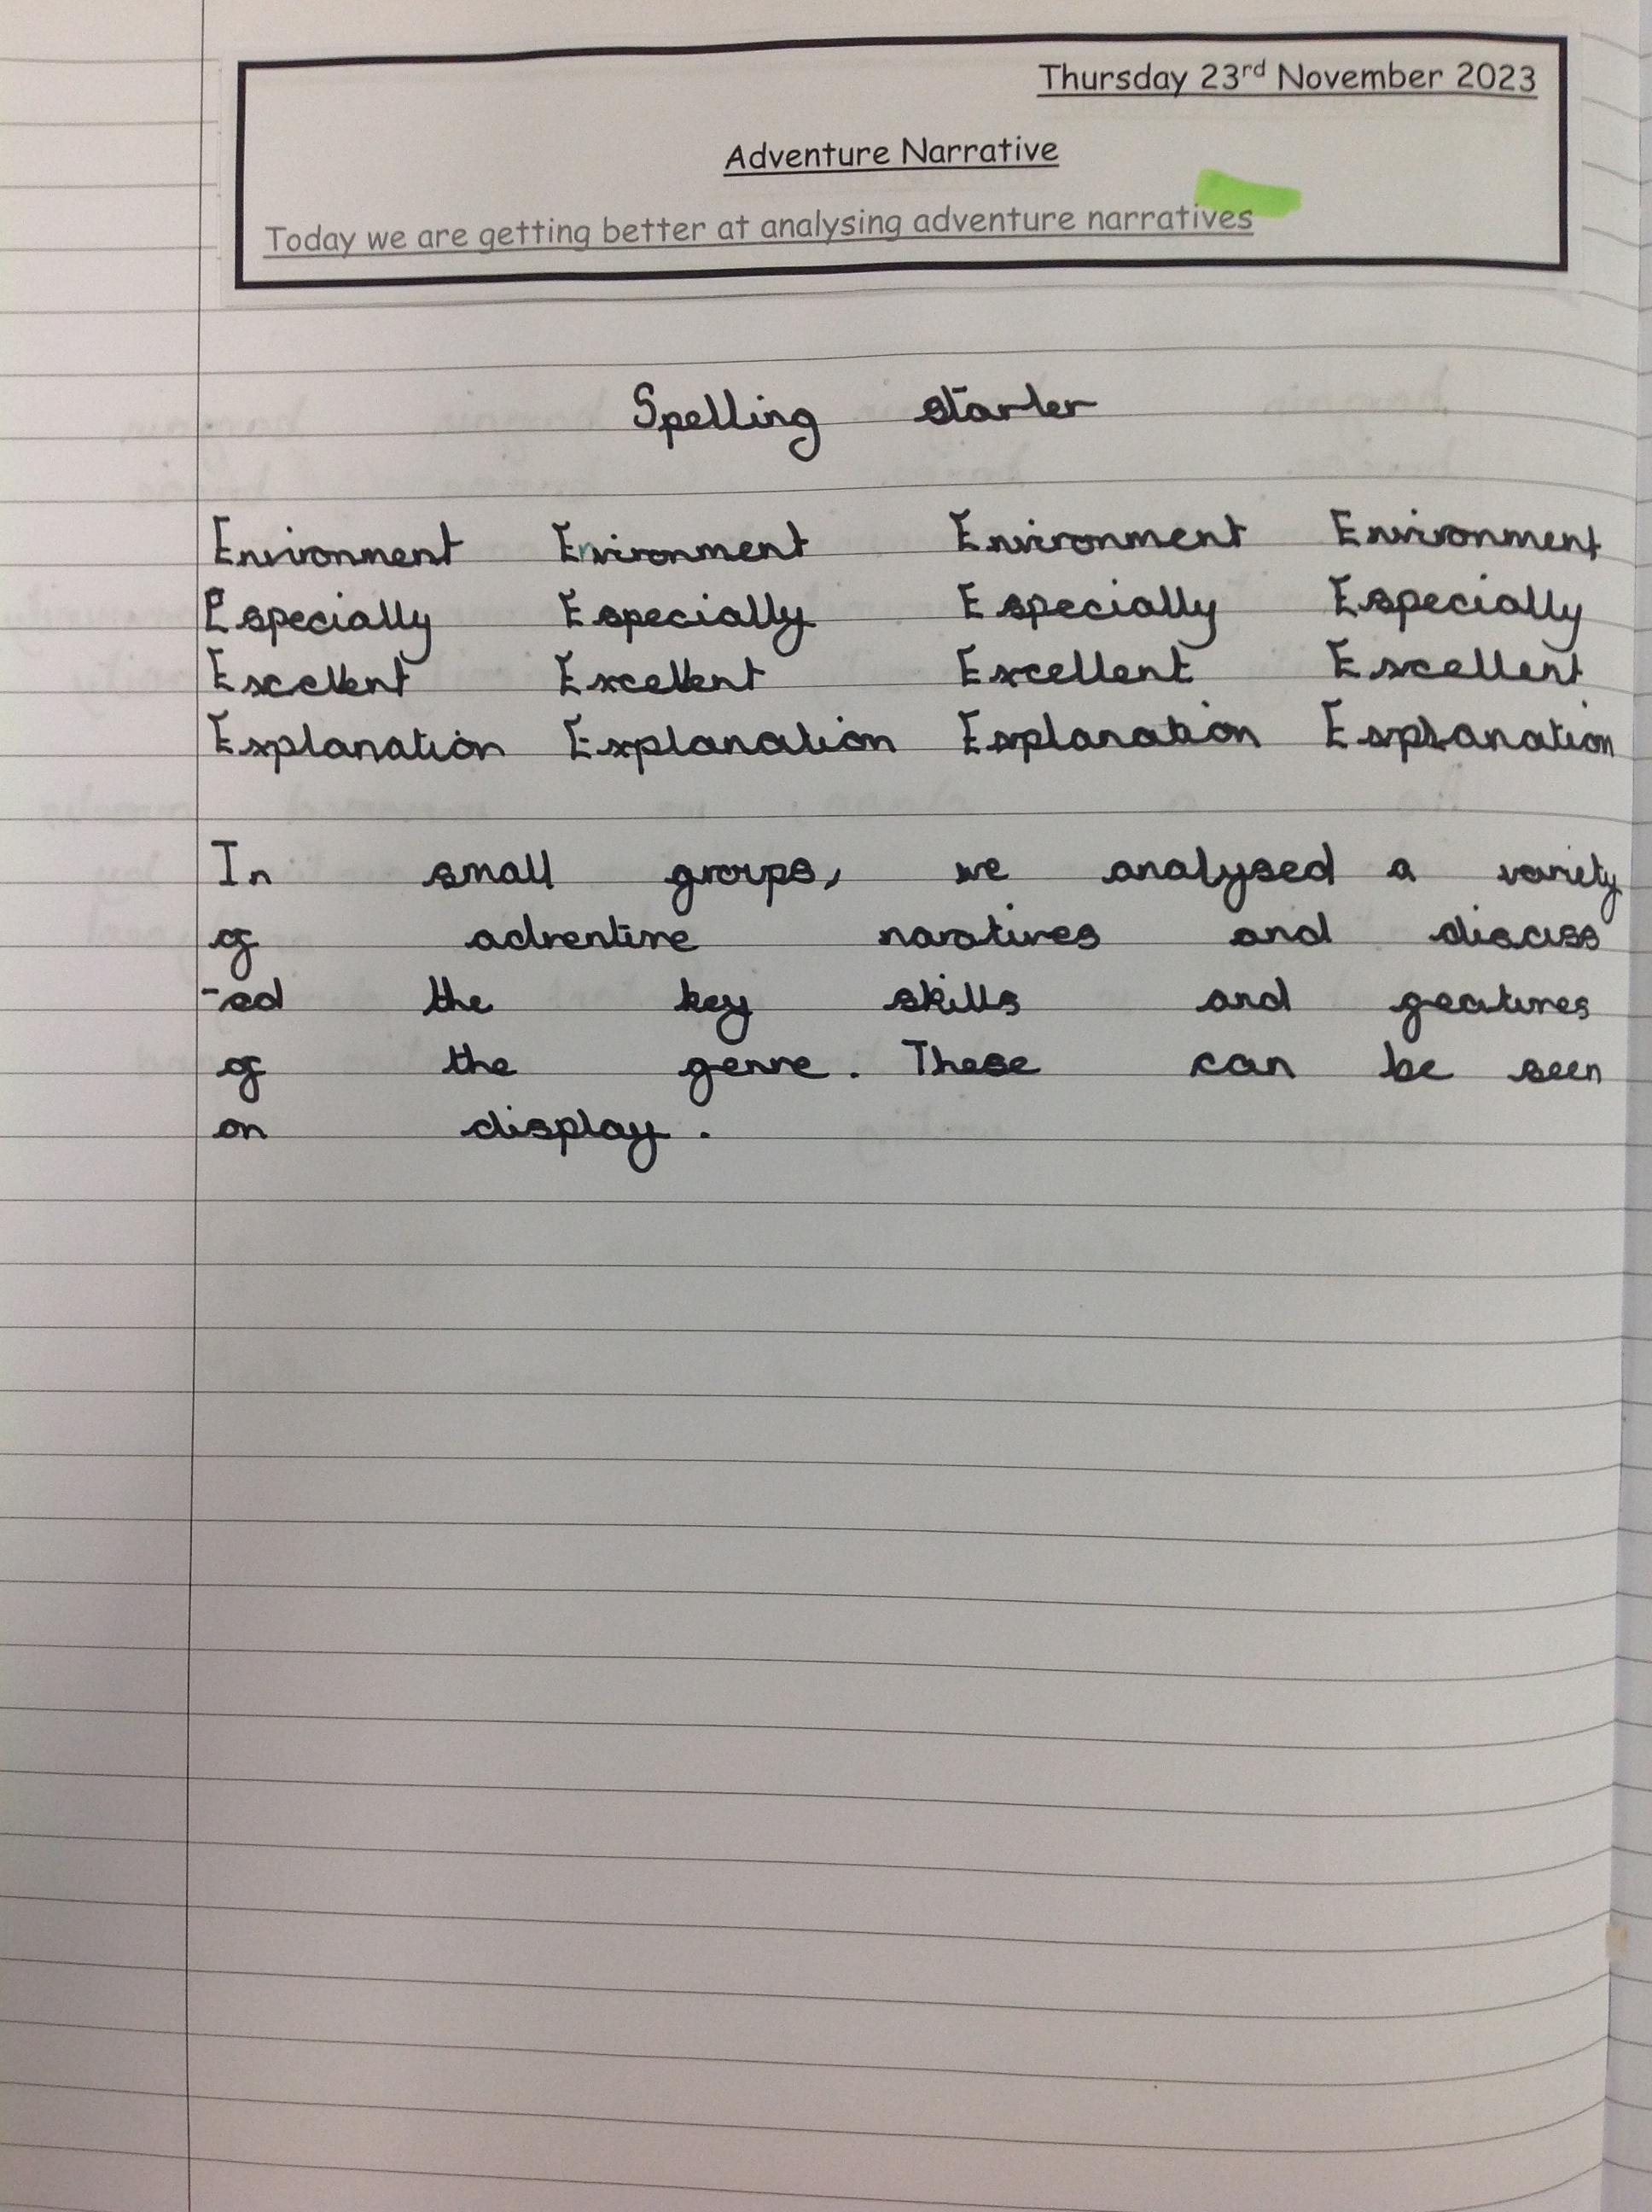 Thursday 23rd November 2023
Adventure Narrative
Today we are getting better at analysing adventure narratives
Spelling starter
Environment Environment Environment Environment
Especially Especially Especially Especially
Excellent Excellent Excellent Excellent
Explanation Explanation Explanation Explanation
In small groups, we analysed a variety
of adventure naratives and discuss
-ed the key skills and features
of the genre. These can be seen
on display.